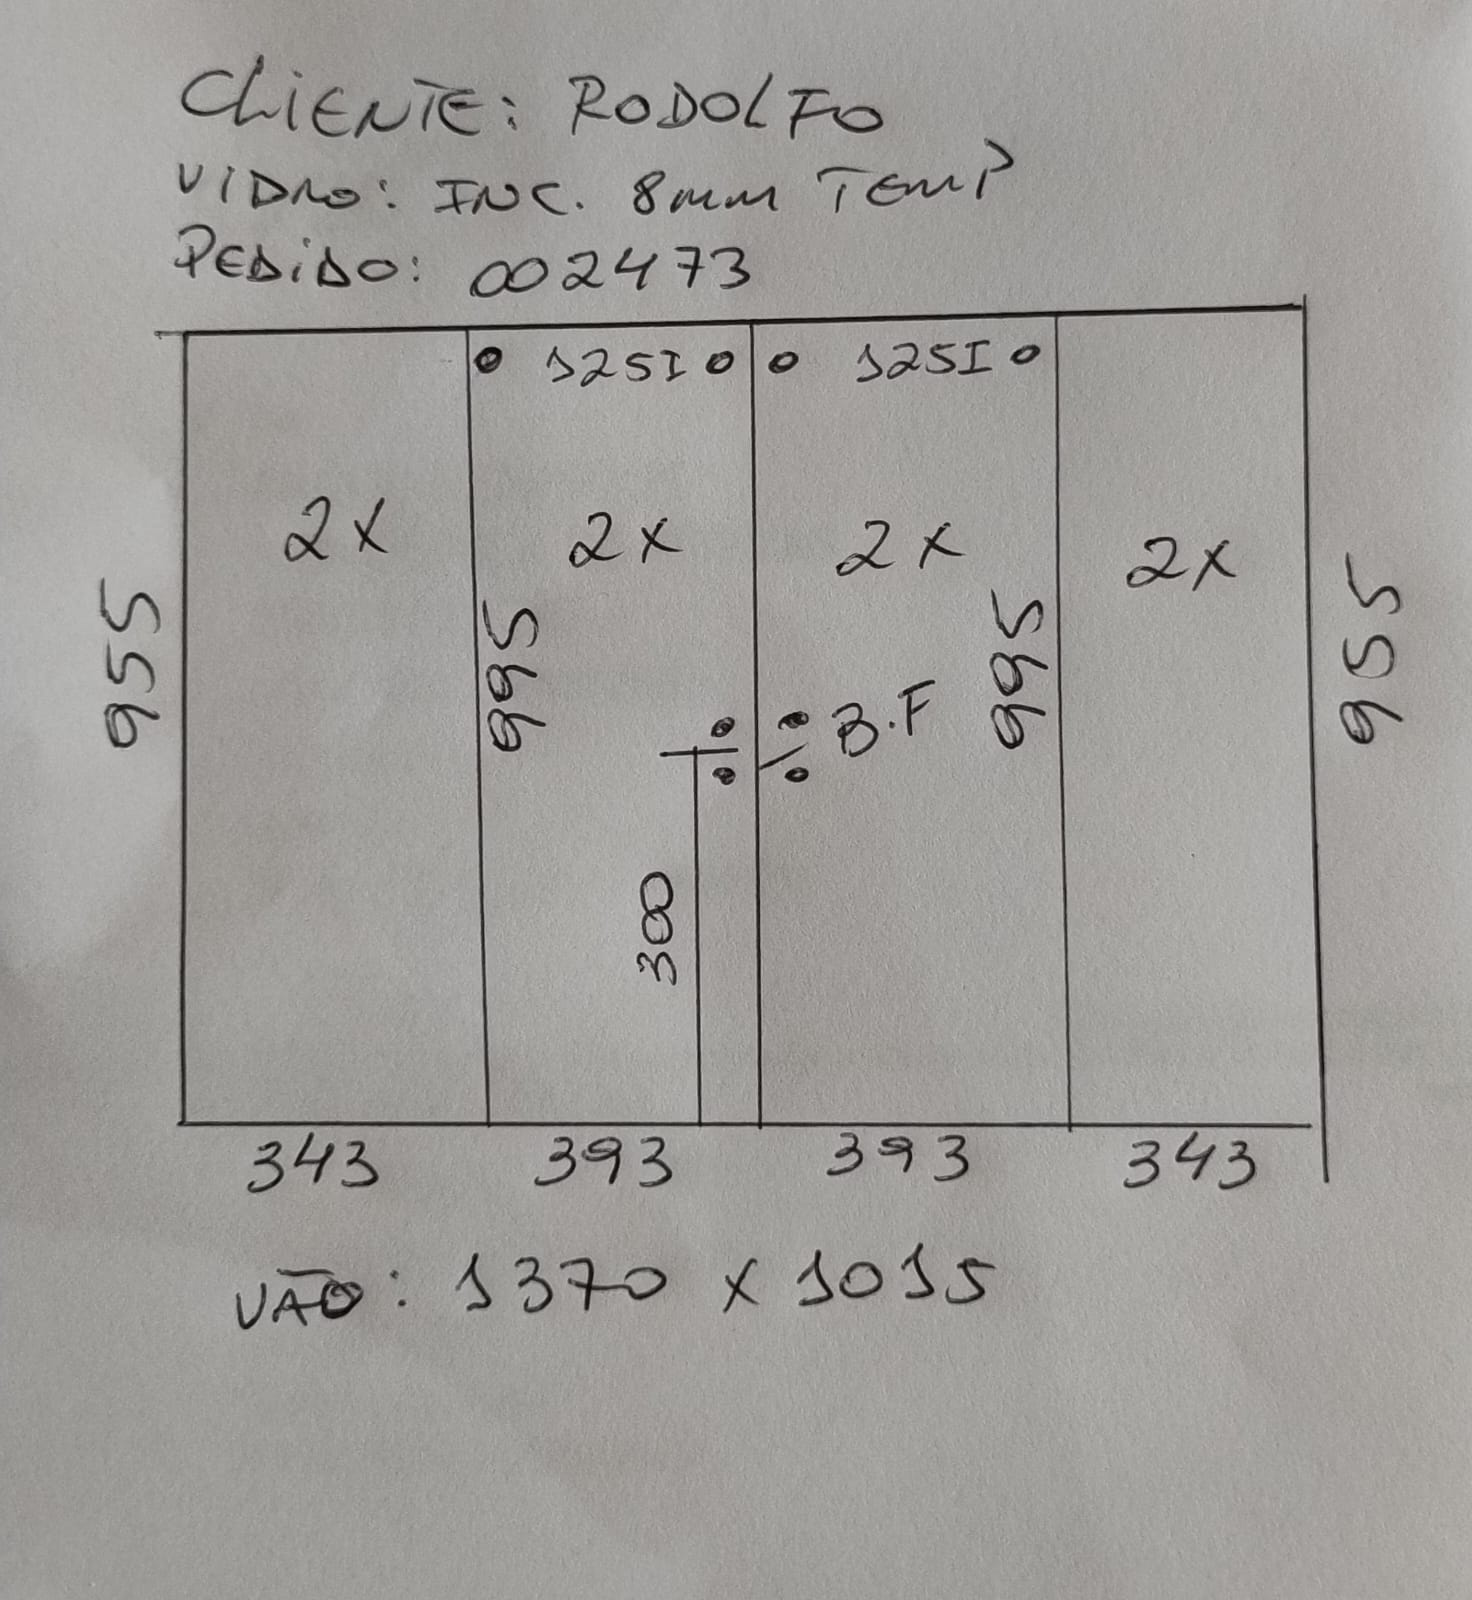 CLIENTE: RODOLFO
VIDRO: INC. 8mm TEMP
PEDIDO: 002473
125I 125I
2x 2x 2x 2x
955 995 995 955
B.F
300
343 393 393 343
VÃO: 1370 x 1015